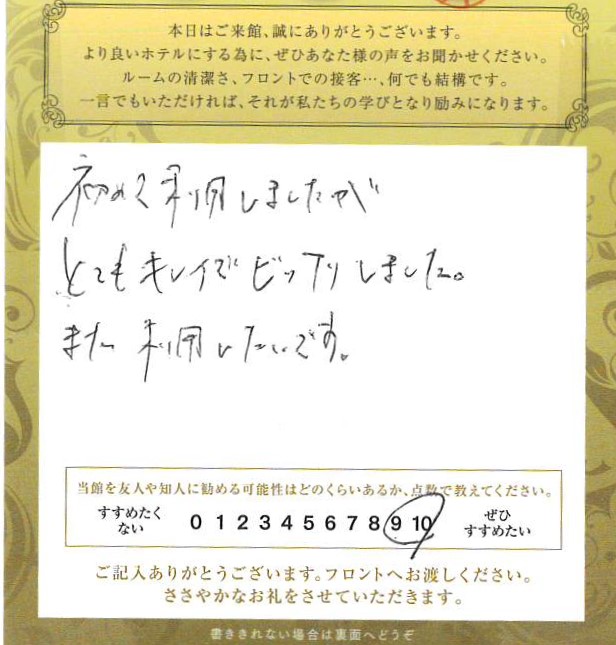 本日はご来館、誠にありがとうございます。
より良いホテルにする為に、ぜひあなた様の声をお聞かせください。
ルームの清潔さ、フロントでの接客…、何でも結構です。
一言でもいただければ、それが私たちの学びとなり励みになります。
初めて利用しましたが
とてもキレイでビックリしました。
また利用したいです。
当館を友人や知人に勧める可能性はどのくらいあるか、点数で教えてください。
すすめたくない 0 1 2 3 4 5 6 7 8 9 10 ぜひすすめたい
ご記入ありがとうございます。フロントへお渡しください。
ささやかなお礼をさせていただきます。
書ききれない場合は裏面へどうぞ